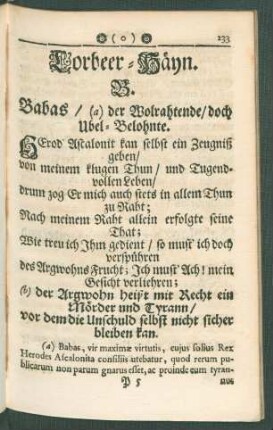 (o) 233
Lorbeer-Häyn.
B.
Babas / (a) der Wolrahtende/ doch
Übel-Belohnte.
HErod Ascalonit kan selbst ein Zeugniß
geben/
von meinem klugen Thun/ und Tugend-
vollen Leben/
drum zog Er mich auch stets in allem Thun
zu Raht;
Nach meinem Raht allein erfolgte seine
That;
Wie treu ich Ihm gedient / so must' ich doch
verspühren
des Argwohns Frucht; Ich must' Ach! mein
Gesicht verliehren;
(b) der Argwohn heißt mit Recht ein
Mörder und Tyrann/
vor dem die Unschuld selbst nicht sicher
bleiben kan.
(a) Babas, vir maximæ virtutis, cujus solius Rex
Herodes Ascalonita consiliis utebatur, quod rerum pu-
blicarum non parum gnarus esset, ac proinde eum tyran-
P 5 nus